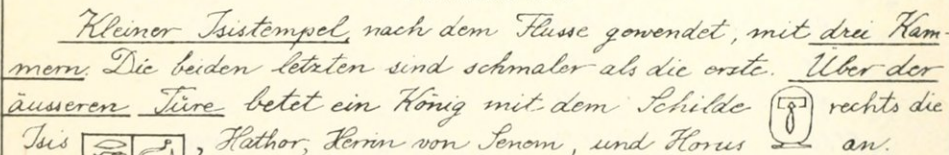 Kleiner Isistempel, nach dem Flusse gewendet, mit drei Kam-
mern. Die beiden letzten sind schmaler als die erste. Über der
äusseren Türe betet ein König mit dem Schilde rechts die
Isis , Hathor, Herrin von Senem, und Horus an.